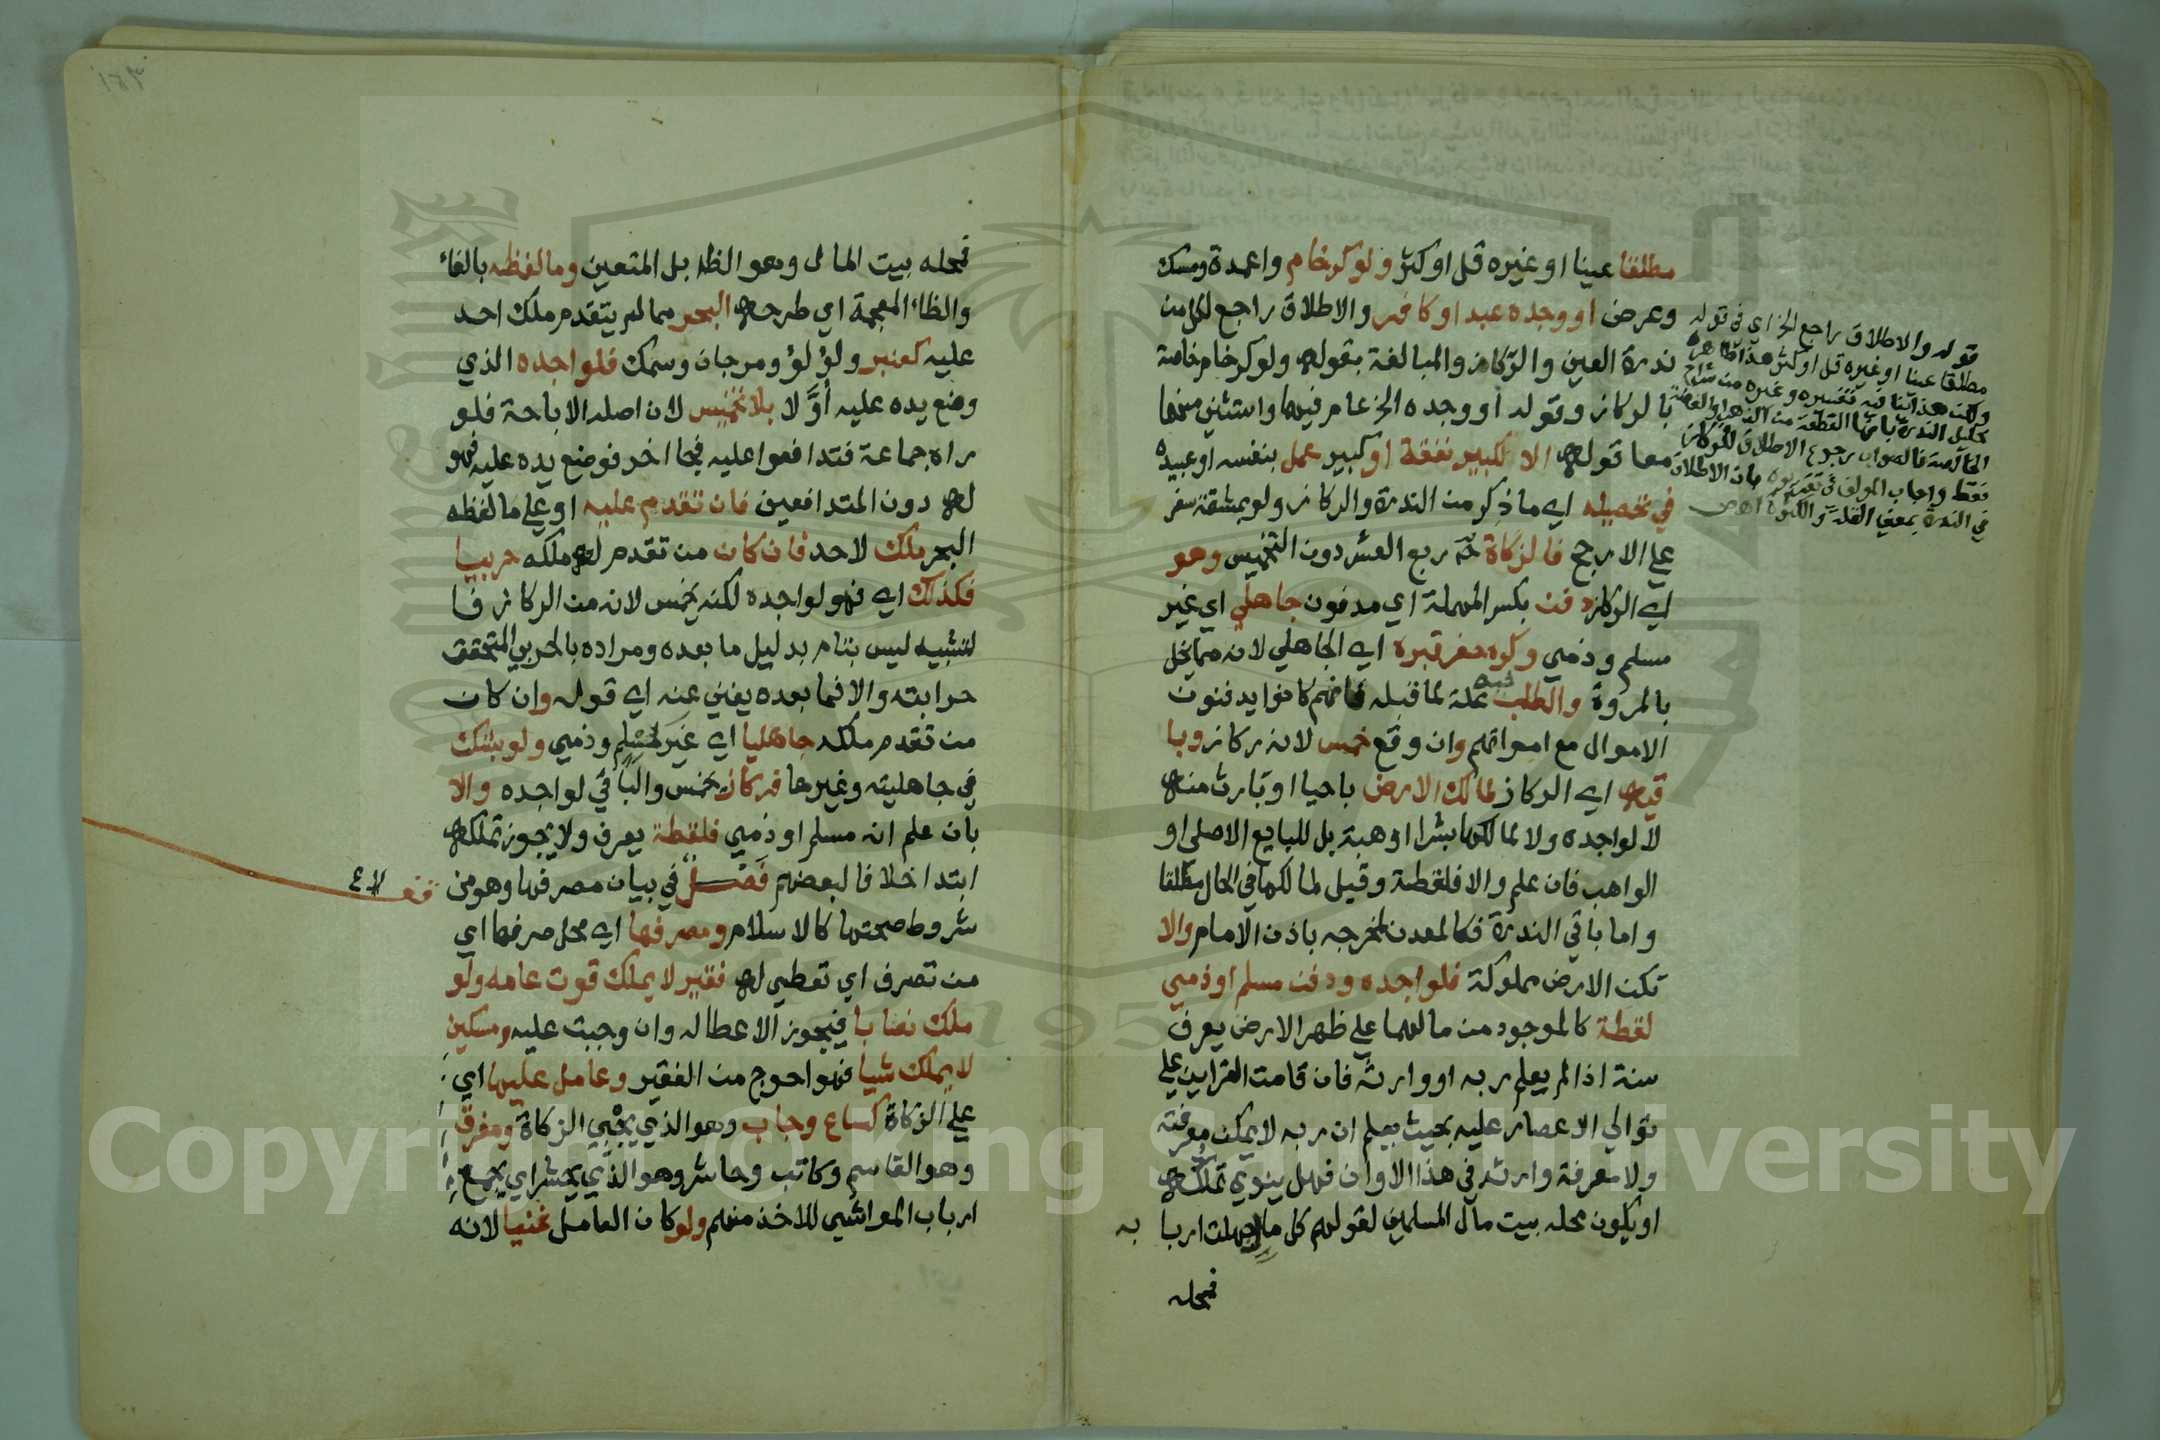 مطلقا عينا او غيره قل او كثر ولو كرخام واعمدة ومسك
وعرض او وجده عبد او كافر والاطلاق راجع لكل من
ندرة العين والركاز والمبالغة بقوله ولو كرخام خاصة
بالركاز وقوله او وجده الخ عام فيهما واستثني منهما
معا قوله الا لكبير نفقة او كبير عمل بنفسه او عبيده
في تحصيله اي ما ذكر من الندرة والركاز ولو بمشقة سفر
على الارجح فالزكاة ثم ربع العشر دون التخميس وهو
اي الركاز دفن بكسر المهملة اي مدفون جاهلي اي غير
مسلم وذمي وكره حفر قبره اي الجاهلي لانه مما يخل
بالمروة والطلب فيه علة لما قبله فانهم كانوا يدفنون
الاموال مع امواتهم وان وقع خمس لانه ركاز وبا
قيه اي الركاز لمالك الارض باحيا او بارث منه
لا لواجده ولا لمالكها بشرا او هبة بل للبايع الاصلي او
الواهب فان علم والا فلقطة وقيل لمالكها في الحال مطلقا
واما باقي الندرة فكالمعدن لمخرجه باذن الامام والا
تكن الارض مملوكة فلواجده ودفن مسلم او ذمي
لقطة كالموجود من مالهما على ظهر الارض يعرف
سنة اذا لم يعلم ربه او وارثه فان قامت القراين على
توالي الاعصار عليه بحيث يعلم ان ربه لا يمكن معرفته
ولا معرفة وارثه في هذا الاوان فهل ينوي تملكه
او يكون محله بيت مال المسلمين لقولهم كل مال جهلت اربا به
فمحله
قوله والاطلاق راجع الخ اي في قوله
مطلقا عينا او غيره قل او كثر هذا ظاهره
ولكن هذا ينافيه تفسيره وغيره من شراح
خليل الندرة بانها القطعة من الذهب او الفضة
الخالصة فالصواب رجوع الاطلاق للركاز
فقط واجاب المولف في تقريره بان الاطلاق
في الندرة بمعنى القلة والكثرة اهـ ص
فمحله بيت المال وهو الظاهر بل المتعين وما لفظه بالفاء
والظاء المعجمة اي طرحه البحر مما لم يتقدم ملك احد
عليه كعنبر ولؤلؤ ومرجان وسمك فلواجده الذي
وضع يده عليه أوَّلا بلا تخميس لان اصله الاباحة فلو
راه جماعة فتدافعوا عليه فجا اخر فوضع يده عليه فهو
له دون المتدافعين فان تقدم عليه او على ما لفظه
البحر ملك لاحد فان كان من تقدم له ملكه حربيا
فكذلك اي فهو لواجده لكنه يخمس لانه من الركاز فا
لتشبيه ليس بتام بدليل ما بعده ومراده بالحربي المتحقق
حرابته والا فما بعده يغني عنه اي قوله وان كان
من تقدم ملكه جاهليا اي غير مسلم وذمي ولو بشك
في جاهليته وغيرها فركان يخمس والباقي لواجده والا
بان علم انه مسلم او ذمي فلقطة يعرف ولا يجوز تملكه
ابتدا خلافا لبعضهم فصل في بيان مصرفها وهو من
شروط صحتها كالاسلام ومصرفها اي محل صرفها اي
من تصرف اي تعطي له فقير لا يملك قوت عامه ولو
ملك نصابا فيجوز الاعطاله وان وجبت عليه ومسكين
لا يملك شيا فهو احوج من الفقير وعامل عليها اي
على الزكاة كساع وجاب وهو الذي يجبي الزكاة ومفرق
وهو القاسم وكاتب وحاشر وهو الذي يحشر اي يجمع
ارباب المواشي للاخذ منهم ولو كان العامل غنيا لانه
Copyright © King Saud University
1957